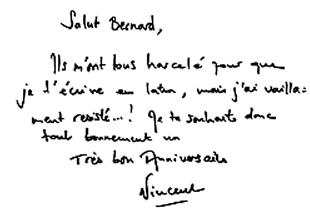 Salut Bernard,
Ils m'ont tous harcelé pour que
je l'écrive en latin, mais j'ai vailla=
ment resisté...! Je te souhaite donc
tout bonnement un
Très bon Anniversaire
Vincent